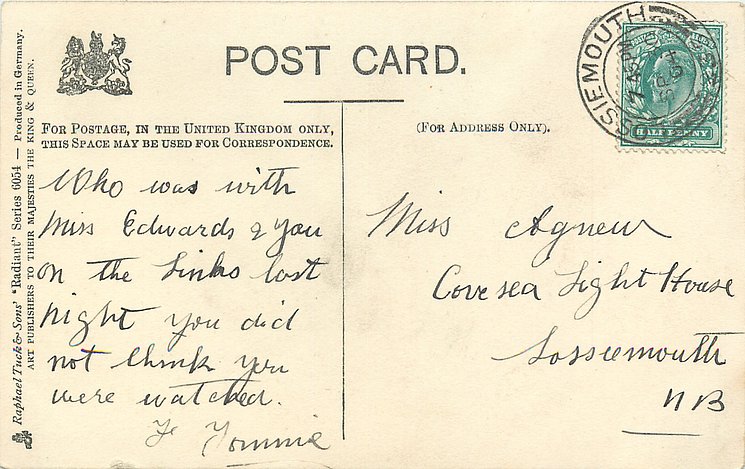 POST CARD.
FOR POSTAGE, IN THE UNITED KINGDOM ONLY,
THIS SPACE MAY BE USED FOR CORRESPONDENCE.
(FOR ADDRESS ONLY).
Who was with
Miss Edwards & you
on the Links last
night you did
not think you
were watched.
Tommie
Miss Agnew
Covesea Light House
Lossiemouth
NB
Raphael Tuck & Sons' "Radiant" Series 6054 — Produced in Germany.
ART PUBLISHERS TO THEIR MAJESTIES THE KING & QUEEN.
LOSSIEMOUTH
HALF PENNY